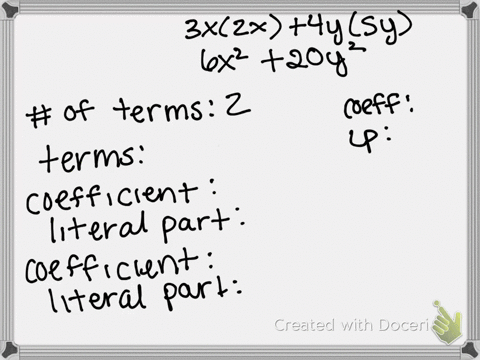 3x(2x) + 4y(5y)
6x² + 20y²
# of terms: 2
coeff:
terms:
LP:
coefficient:
literal part:
coefficient:
literal part:
Created with Doceri